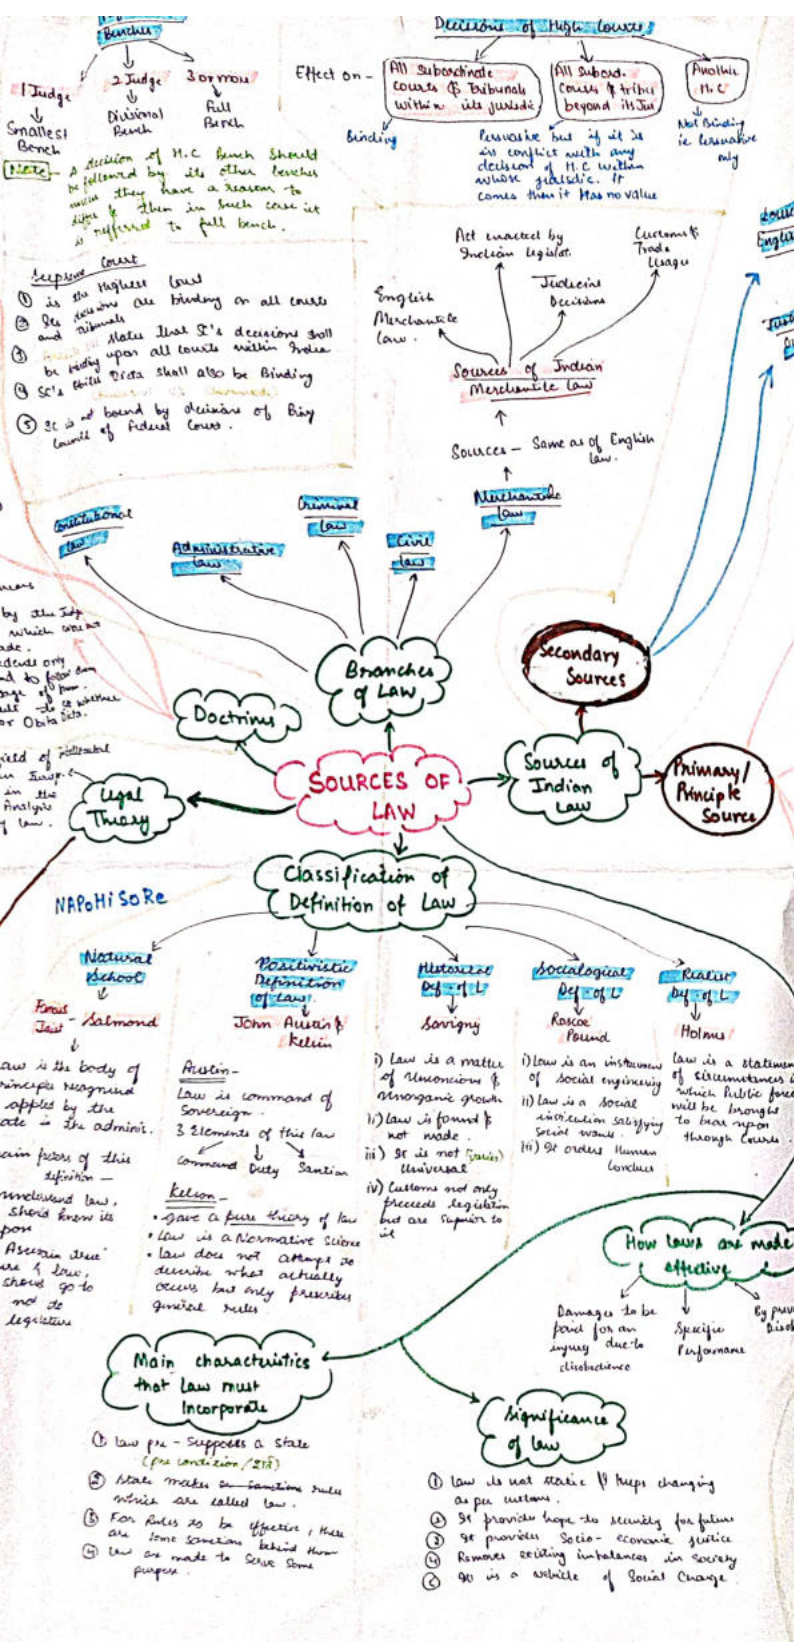 Benches
1 Judge
Smallest
Bench
2 Judge
Divisional
Bench
3 or more
Full
Bench
Note - A decision of H.C Bench should
be followed by its other benches
unless they have a reason to
differ & then in such case it
is referred to full bench.
Decisions of High Courts
Effect on -
All subordinate
courts & Tribunals
within its jurisdic
Binding
All Subord.
Courts & tribu
beyond its Jur
Persuasive but if it is
in conflict with any
decision of H.C within
whose jurisdic. It
comes then it Has no value
Another
H.C
Not Binding
ie Persuasive
only
Supreme Court
① is the Highest Court
② Its decisions are binding on all courts
and Tribunals
③ states that SC's decisions shall
be binding upon all courts within India
④ SC's Obiter Dicta shall also be Binding
⑤ It is not bound by decisions of Privy
Council of Federal Court.
English
Merchantile
Law.
Act enacted by
Indian legislat.
Judicial
Decisions
Customs &
Trade
Usage
Sources of Indian
Merchantile Law
Sources - Same as of English
law.
Constitutional
Law
Administrative
Law
Criminal
Law
Civil
Law
Merchantile
Law
Branches
of Law
Doctrines
Secondary
Sources
SOURCES OF
LAW
Sources of
Indian
Law
Primary/
Principle
Source
Legal
Theory
Classification of
Definition of Law
NAPoHiSoRe
Natural
School
Salmond
law is the body of
principles recognised
applied by the
in the adminis.
of this
definition -
understand law,
should know its
Ascertain true
& law,
should go to
not to
legislature
Positivistic
Definition
of Law.
John Austin &
Kelsen
Austin -
Law is command of
Sovereign.
3 Elements of this law
Command Duty Sanction
Kelson -
• Gave a pure theory of law
• Law is a Normative Science
• Law does not attempt to
describe what actually
occurs but only prescribes
general rules
Historical
Def- of L
Savigny
i) Law is a matter
of Unconcious &
inorganic growth
ii) Law is found &
not made.
iii) It is not
Universal
iv) Customs not only
precede legislation
but are Superior to
it
Socialogical
Def - of L
Roscoe
Pound
i) Law is an instrument
of social engineering
ii) Law is a social
institution satisfying
social wants.
iii) It orders Human
Conduct
Realist
Def- of L
Holmes
Law is a statement
of circumstances
which Public force
will be brought
to bear upon
through Courts.
How laws are made
effective
Damages to be
paid for an
injury due to
disobedience
Specific
Performance
Main characteristics
that Law must
Incorporate
① Law pre - Supposes a state
② State makes rules
which are called law.
③ For Rules to be effective, there
are some sanctions behind them
④ Law are made to Serve Some
purpose.
Significance
of law
① Law is not static & keeps changing
as per customs.
② It provides hope to security for future
③ It provides Socio - economic justice
④ Removes existing imbalances in society
⑤ It is a vehicle of Social Change.